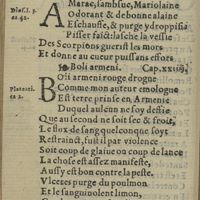 Marac, sambsuc, Mariolaine
Odorant & debonnalaine
Eschauffe, & purge ydroppisia
Pisser faict: lasche la vessie
Des Scorpions guerist les mors
Et donne au cueur puissans effors
Boli armeni. Cap.
Boli armeni rouge drogue
Comme mon auteur emologue
Est terre prinse en Armenie
Duquel aulcun ne soy deffie
Que au second ne soit sec & froit,
Le flux de sang quelconque soyt
Restrainct, fust il par violence
Soit coup de glaiue ou coup de lance
La chose est assez manifeste,
Aussy est bon contre la peste.
Vlceres purge du poulmon
Et le sanguinolent limon,